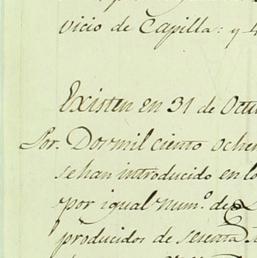 vicio de Capilla: y
Existen en 31 de Octu
Por. Dos mil ciento ochen
se han introducido en lo
por igual num.º de
producidos de sesenta